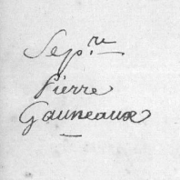 Sep.re
Pierre
Gauneaux